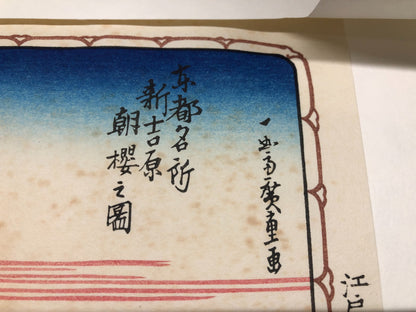 江戸
一幽斎廣重画
東都名所
新吉原
朝櫻之圖